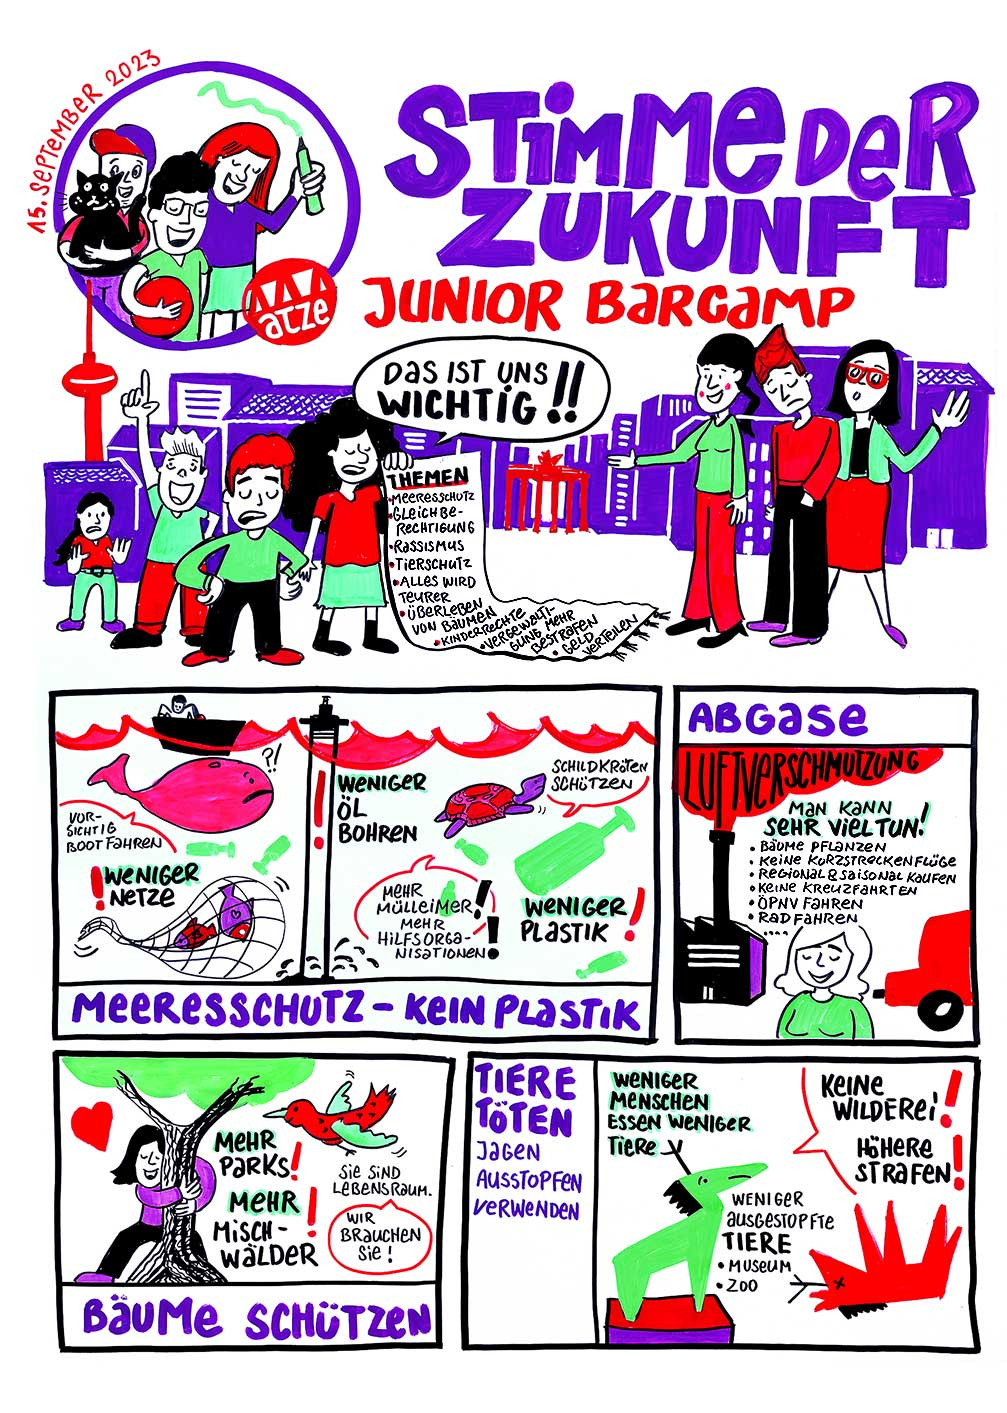 15. SEPTEMBER 2023
STIMME DER
ZUKUNFT
JUNIOR BARCAMP
ATZE
DAS IST UNS
WICHTIG!!
THEMEN
•MEERESSCHUTZ
•GLEICHBE-
RECHTIGUNG
•RASSISMUS
•TIERSCHUTZ
•ALLES WIRD
TEURER
•ÜBERLEBEN
VON BÄUMEN
•KINDERRECHTE
•VERGEWALTI-
GUNG MEHR
BESTRAFEN
•GELD
VERTEILEN
?!
VOR-
SICHTIG
BOOT FAHREN
WENIGER
NETZE!
WENIGER
ÖL
BOHREN!
SCHILDKRÖTEN
SCHÜTZEN
MEHR
MÜLLEIMER!
MEHR
HILFSORGA-
NISATIONEN!
WENIGER
PLASTIK!
MEERESSCHUTZ – KEIN PLASTIK
ABGASE
LUFTVERSCHMUTZUNG
MAN KANN
SEHR VIEL TUN!
• BÄUME PFLANZEN
• KEINE KURZSTRECKENFLÜGE
• REGIONAL & SAISONAL KAUFEN
• KEINE KREUZFAHRTEN
• ÖPNV FAHREN
• RAD FAHREN
....
MEHR
PARKS!
MEHR
MISCH-
WÄLDER!
SIE SIND
LEBENSRAUM.
WIR
BRAUCHEN
SIE!
BÄUME SCHÜTZEN
TIERE
TÖTEN
JAGEN
AUSSTOPFEN
VERWENDEN
WENIGER
MENSCHEN
ESSEN WENIGER
TIERE
WENIGER
AUSGESTOPFTE
TIERE
• MUSEUM
• ZOO
KEINE
WILDEREI!
HÖHERE
STRAFEN!